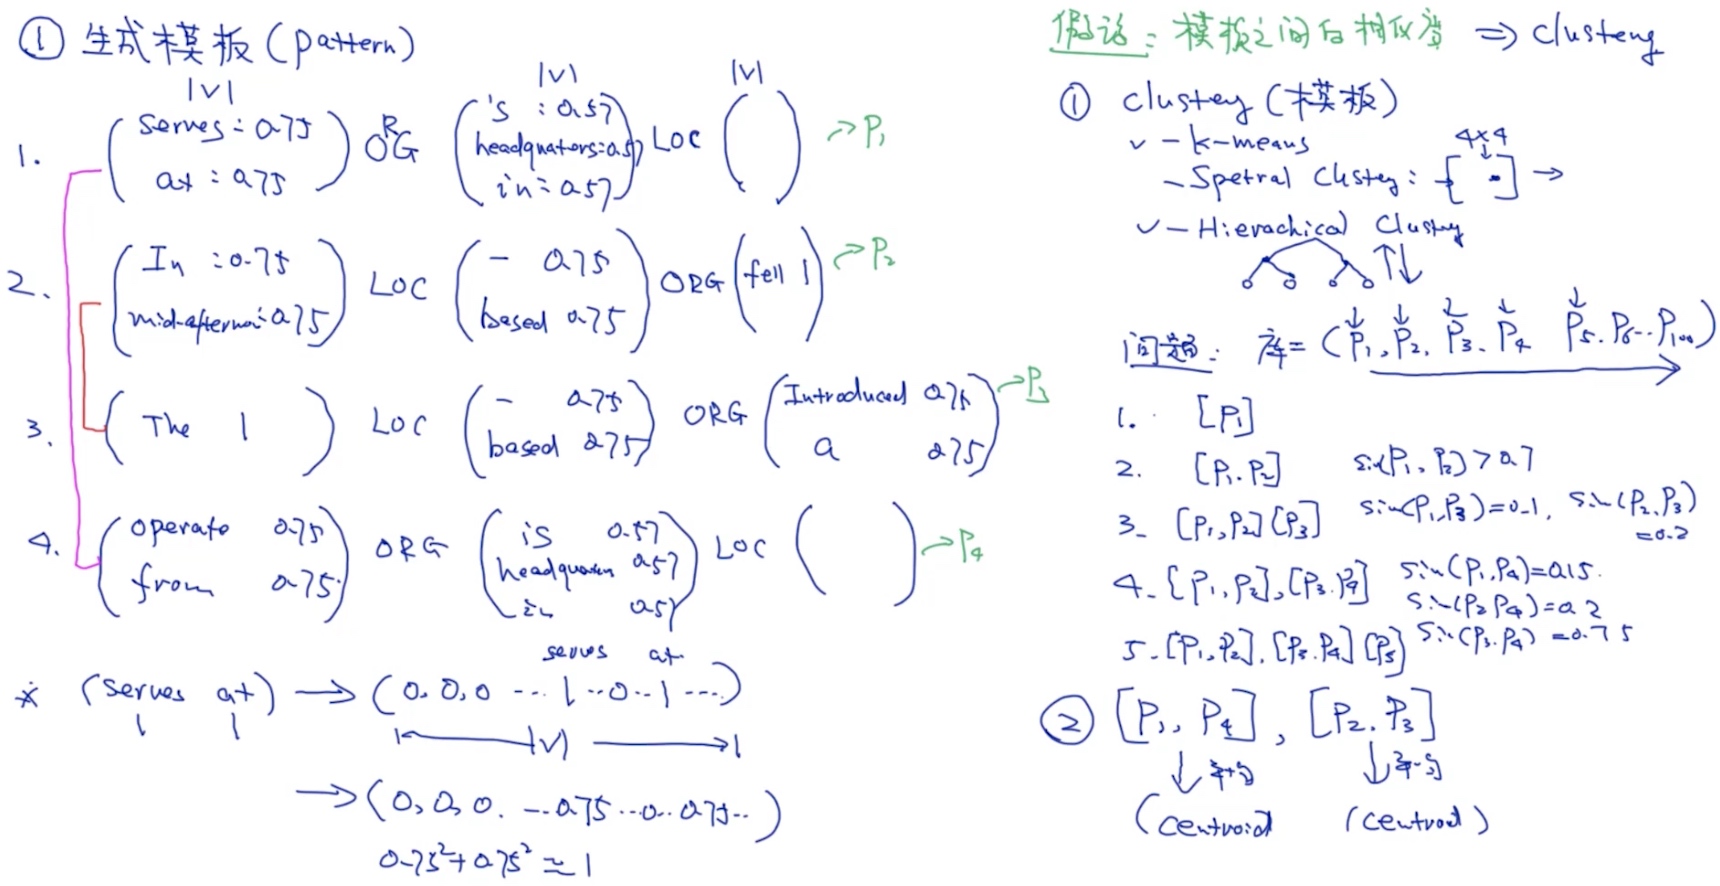 ① 生成模板(pattern)
|V| |V| |V|
1. (serves: 0.75 at: 0.75) ORG ('s : 0.57 headquaters: 0.57 in: 0.57) LOC ( ) → P1
2. (In : 0.75 mid-afternoi: 0.75) LOC (- 0.75 based 0.75) ORG (fell 1) → P2
3. (The 1) LOC (- 0.75 based 0.75) ORG (Introduced 0.75 a 0.75) → P3
4. (operate 0.75 from 0.75) ORG (is 0.57 headquaren 0.57 in 0.57) LOC ( ) → P4
serves at
* (serves at) → (0, 0, 0 ... 1 ..0.. 1 ....)
1 1
|← |V| →|
→ (0, 0, 0. ... 0.75 ...0.. 0.75.. )
0.75² + 0.75² ≃ 1
假设: 模板之间的相似度 ⇒ clusteng
① clustey (模板)
✓ - k-means
4×4
- Spetral Clstey: [ ] →
✓ - Hierachical Clustey
问题: 库 = (P1, P2, P3, P4 P5, P6... P100)
1. [P1]
2. [P1, P2] sim(P1, P2) > 0.7
3. [P1, P2] [P3] sim(P1, P3) = 0.1, sim(P2, P3) = 0.2
4. [P1, P2], [P3, P4] sim(P1, P4) = 0.15.
sim(P2 P4) = 0.2
sim(P3, P4) = 0.75
5. [P1, P2], [P3, P4] [P5]
② [P1, P4], [P2, P3]
↓平均 ↓平均
(centroid (centroid)